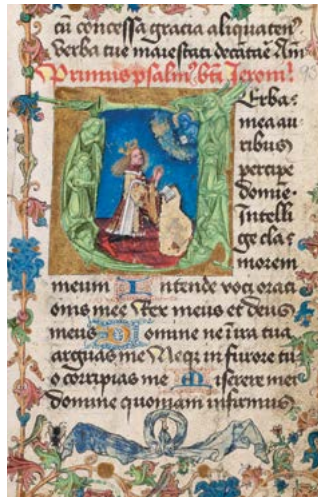 cū concessa gracia aliquatenꝰ
Verba tue maiestati Am̄
Primus psalmꝰ bti Jeronī: 93
VErba-
mea au-
ribus
percipe
domīe·
Intelli
ge cla-
morem
meum Intende voci orati
onis mee Rex meus et deus
meus Domine ne ī ira tua
arguas me Neqꝫ in furore tu
o corripias me Miserere mei
domine quoniam infirmus